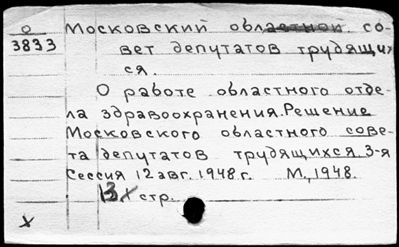 О
3833
Московский областной со-
вет депутатов трудящих
ся.
О работе областного отде-
ла здравоохранения. Решение
Московского областного сове-
та депутатов трудящихся. 3-я
Сессия 12 авг. 1948 г. М., 1948.
13 стр.
х